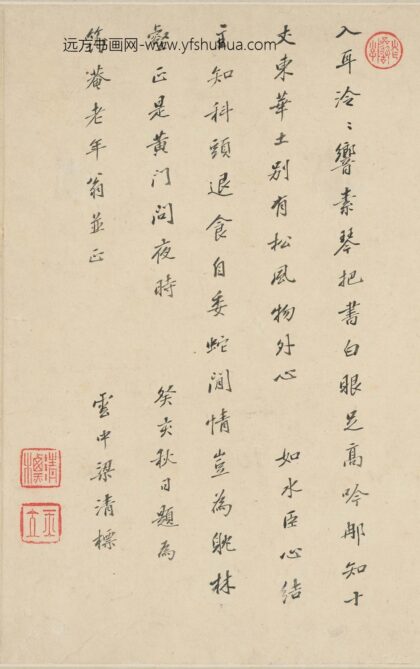 远方书画网-www.yfshuhua.com
入耳泠〻響素琴把書白眼足高吟那知十
丈東華土別有松風物外心　如水臣心結
主知科頭退食自委蛇閒情豈為眺林
壑正是黄门问夜時　癸亥秋日題為
菴老年翁並正　雲中梁清標
清標